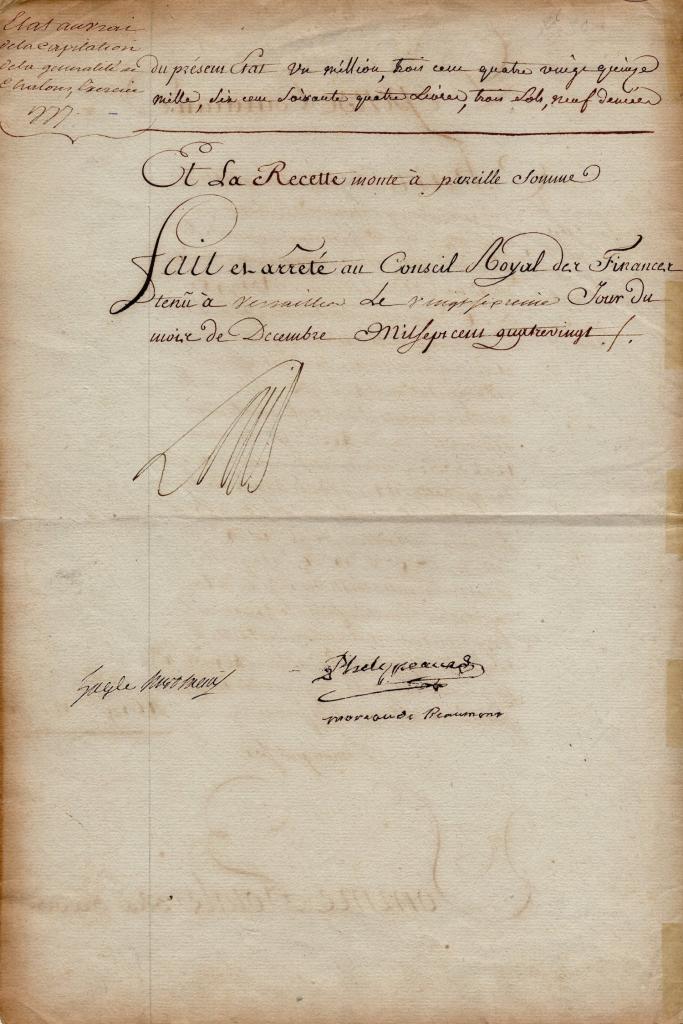 Etat au vrai
de la Capitation
de la generalité de
Chalons, Exercice
1777.
du présent Etat un million, trois cent quatre vingt quinze
mille, six cent Soixante quatre Livres, trois Sols, neuf deniers
Et La Recette monte à pareille Somme
Fait et arrêté au Conseil Royal des Finances
tenû à Versailles Le vingt septieme Jour du
mois de Decembre Mil sept cent quatrevingt /.
Louis
Phelypeaux
moreau de Beaumont